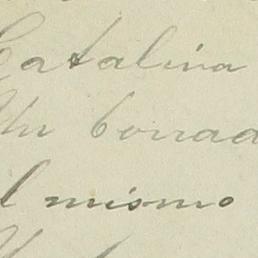 Catalina
Un borrad
l mismo